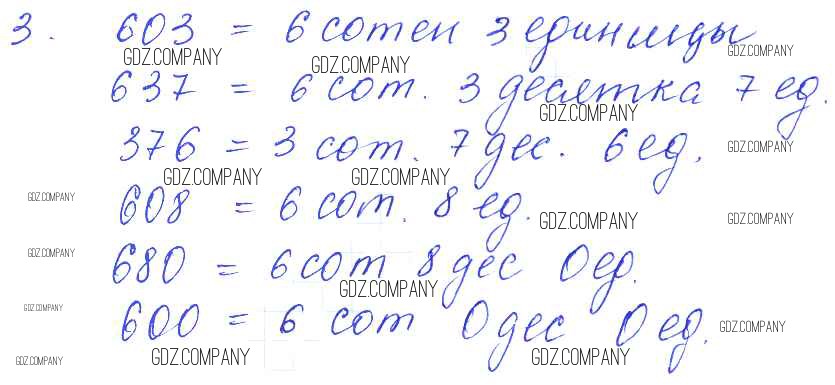 3. 603 = 6 сотен 3 единицы
GDZ.COMPANY GDZ.COMPANY GDZ.COMPANY
637 = 6 сот. 3 десятка 7 ед.
GDZ.COMPANY
376 = 3 сот. 7 дес. 6 ед.
GDZ.COMPANY
GDZ.COMPANY GDZ.COMPANY
608 = 6 сот. 8 ед.
GDZ.COMPANY GDZ.COMPANY GDZ.COMPANY
680 = 6 сот 8 дес 0 ед.
GDZ.COMPANY GDZ.COMPANY
600 = 6 сот 0 дес 0 ед.
GDZ.COMPANY GDZ.COMPANY
GDZ.COMPANY GDZ.COMPANY GDZ.COMPANY